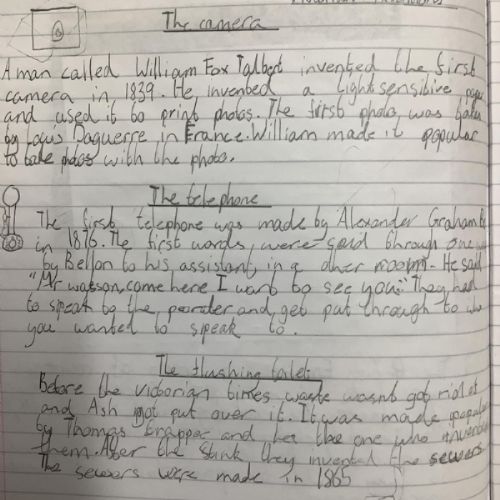 The camera
A man called William Fox Talbert invented the first
camera in 1839. He invented a light sensitive
and used it to print photos. The first photo was taken
by Louis Daguerre in France. William made it popular
to take photos with the photo.
The telephone
The first telephone was made by Alexander Graham
in 1876. The first words, were said through one
by Bell on to his assistant, in a other room. He said
"Mr watson, come here I want to see you." They had
to speak to the and get put through to who
you wanted to speak to.
The flushing toilet
Before the victorian times waste wasn't got rid of
and Ash got put over it. It was made
by Thomas and the one who
them. After the stink they invented the sewers
The sewers were made in 1865